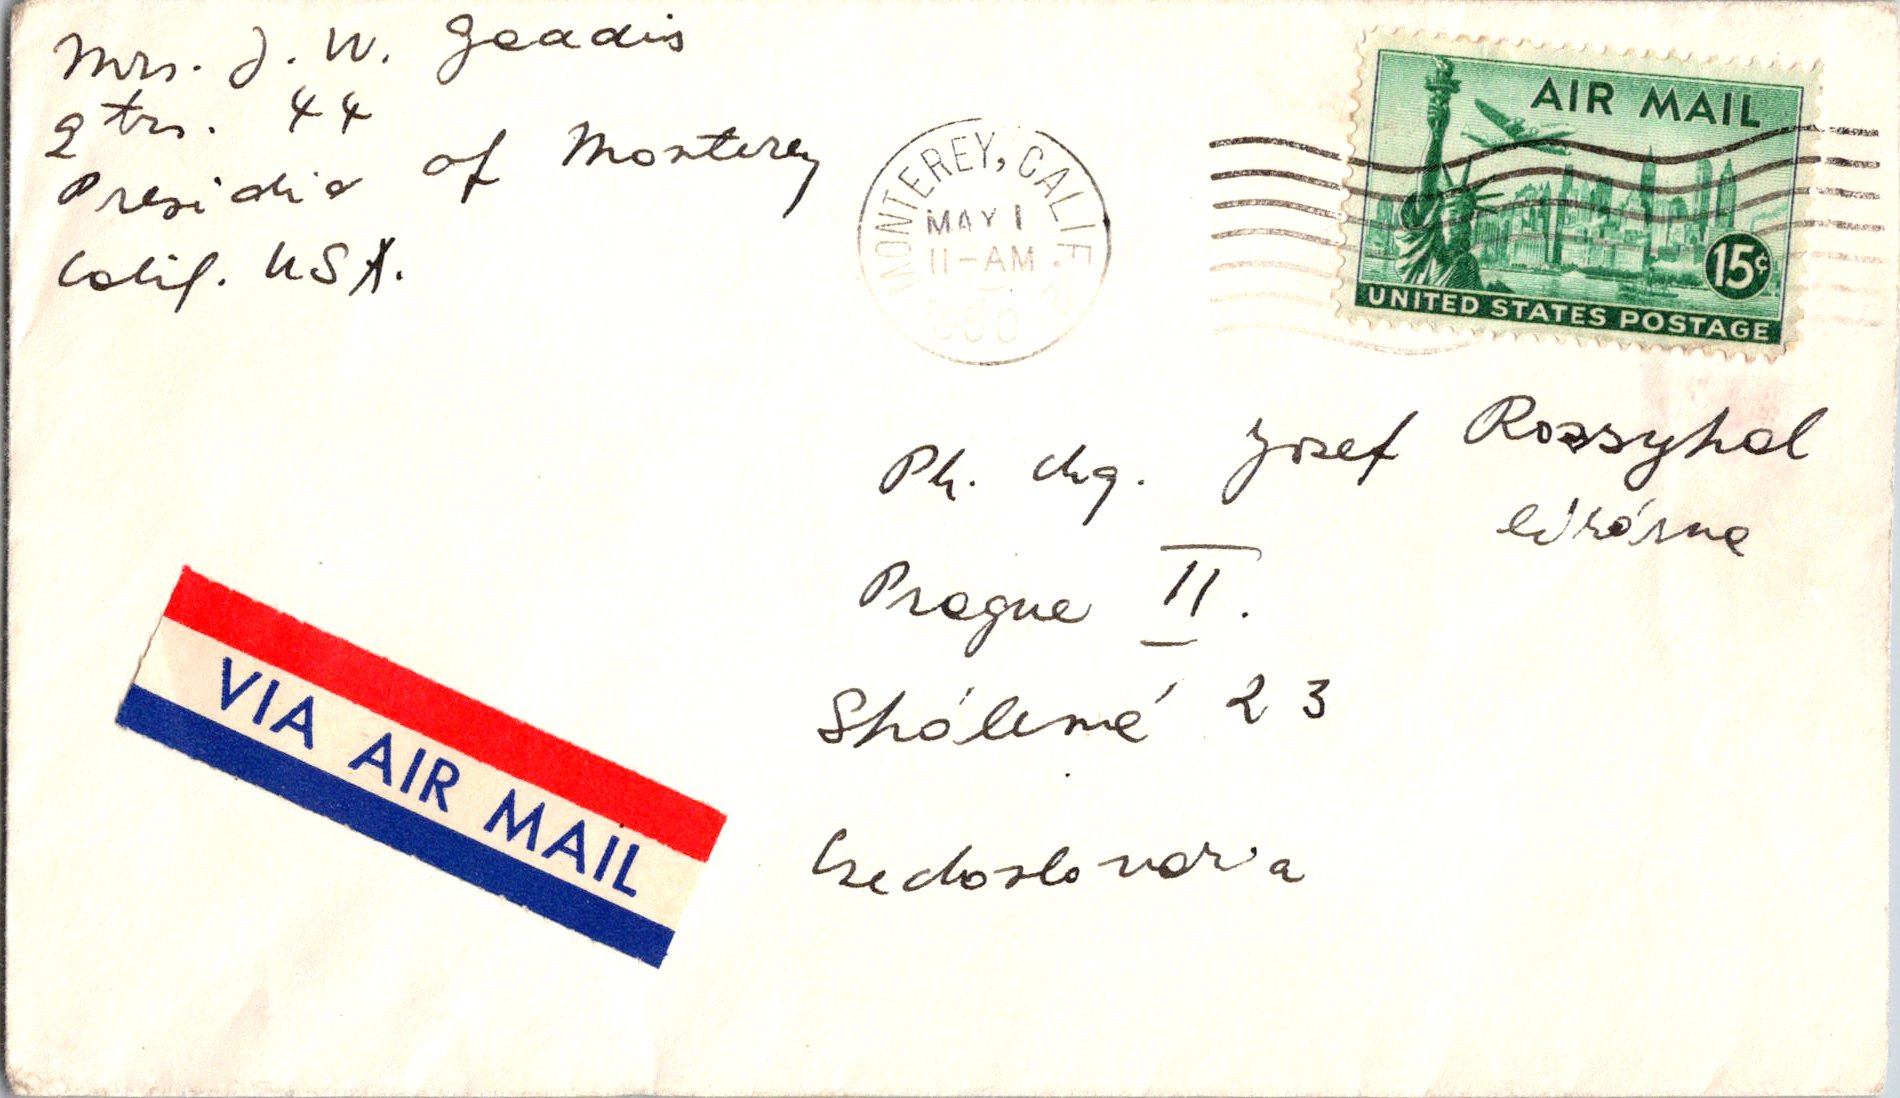 Mrs. J. W. Geadis
Qtrs. 44
Presidio of Monterey
Calif. USA.
MONTEREY, CALIF.
MAY 1
11-AM
1950
AIR MAIL
15¢
UNITED STATES POSTAGE
Ph. Mg. Josef Rossyhal
Prague II.
23
VIA AIR MAIL